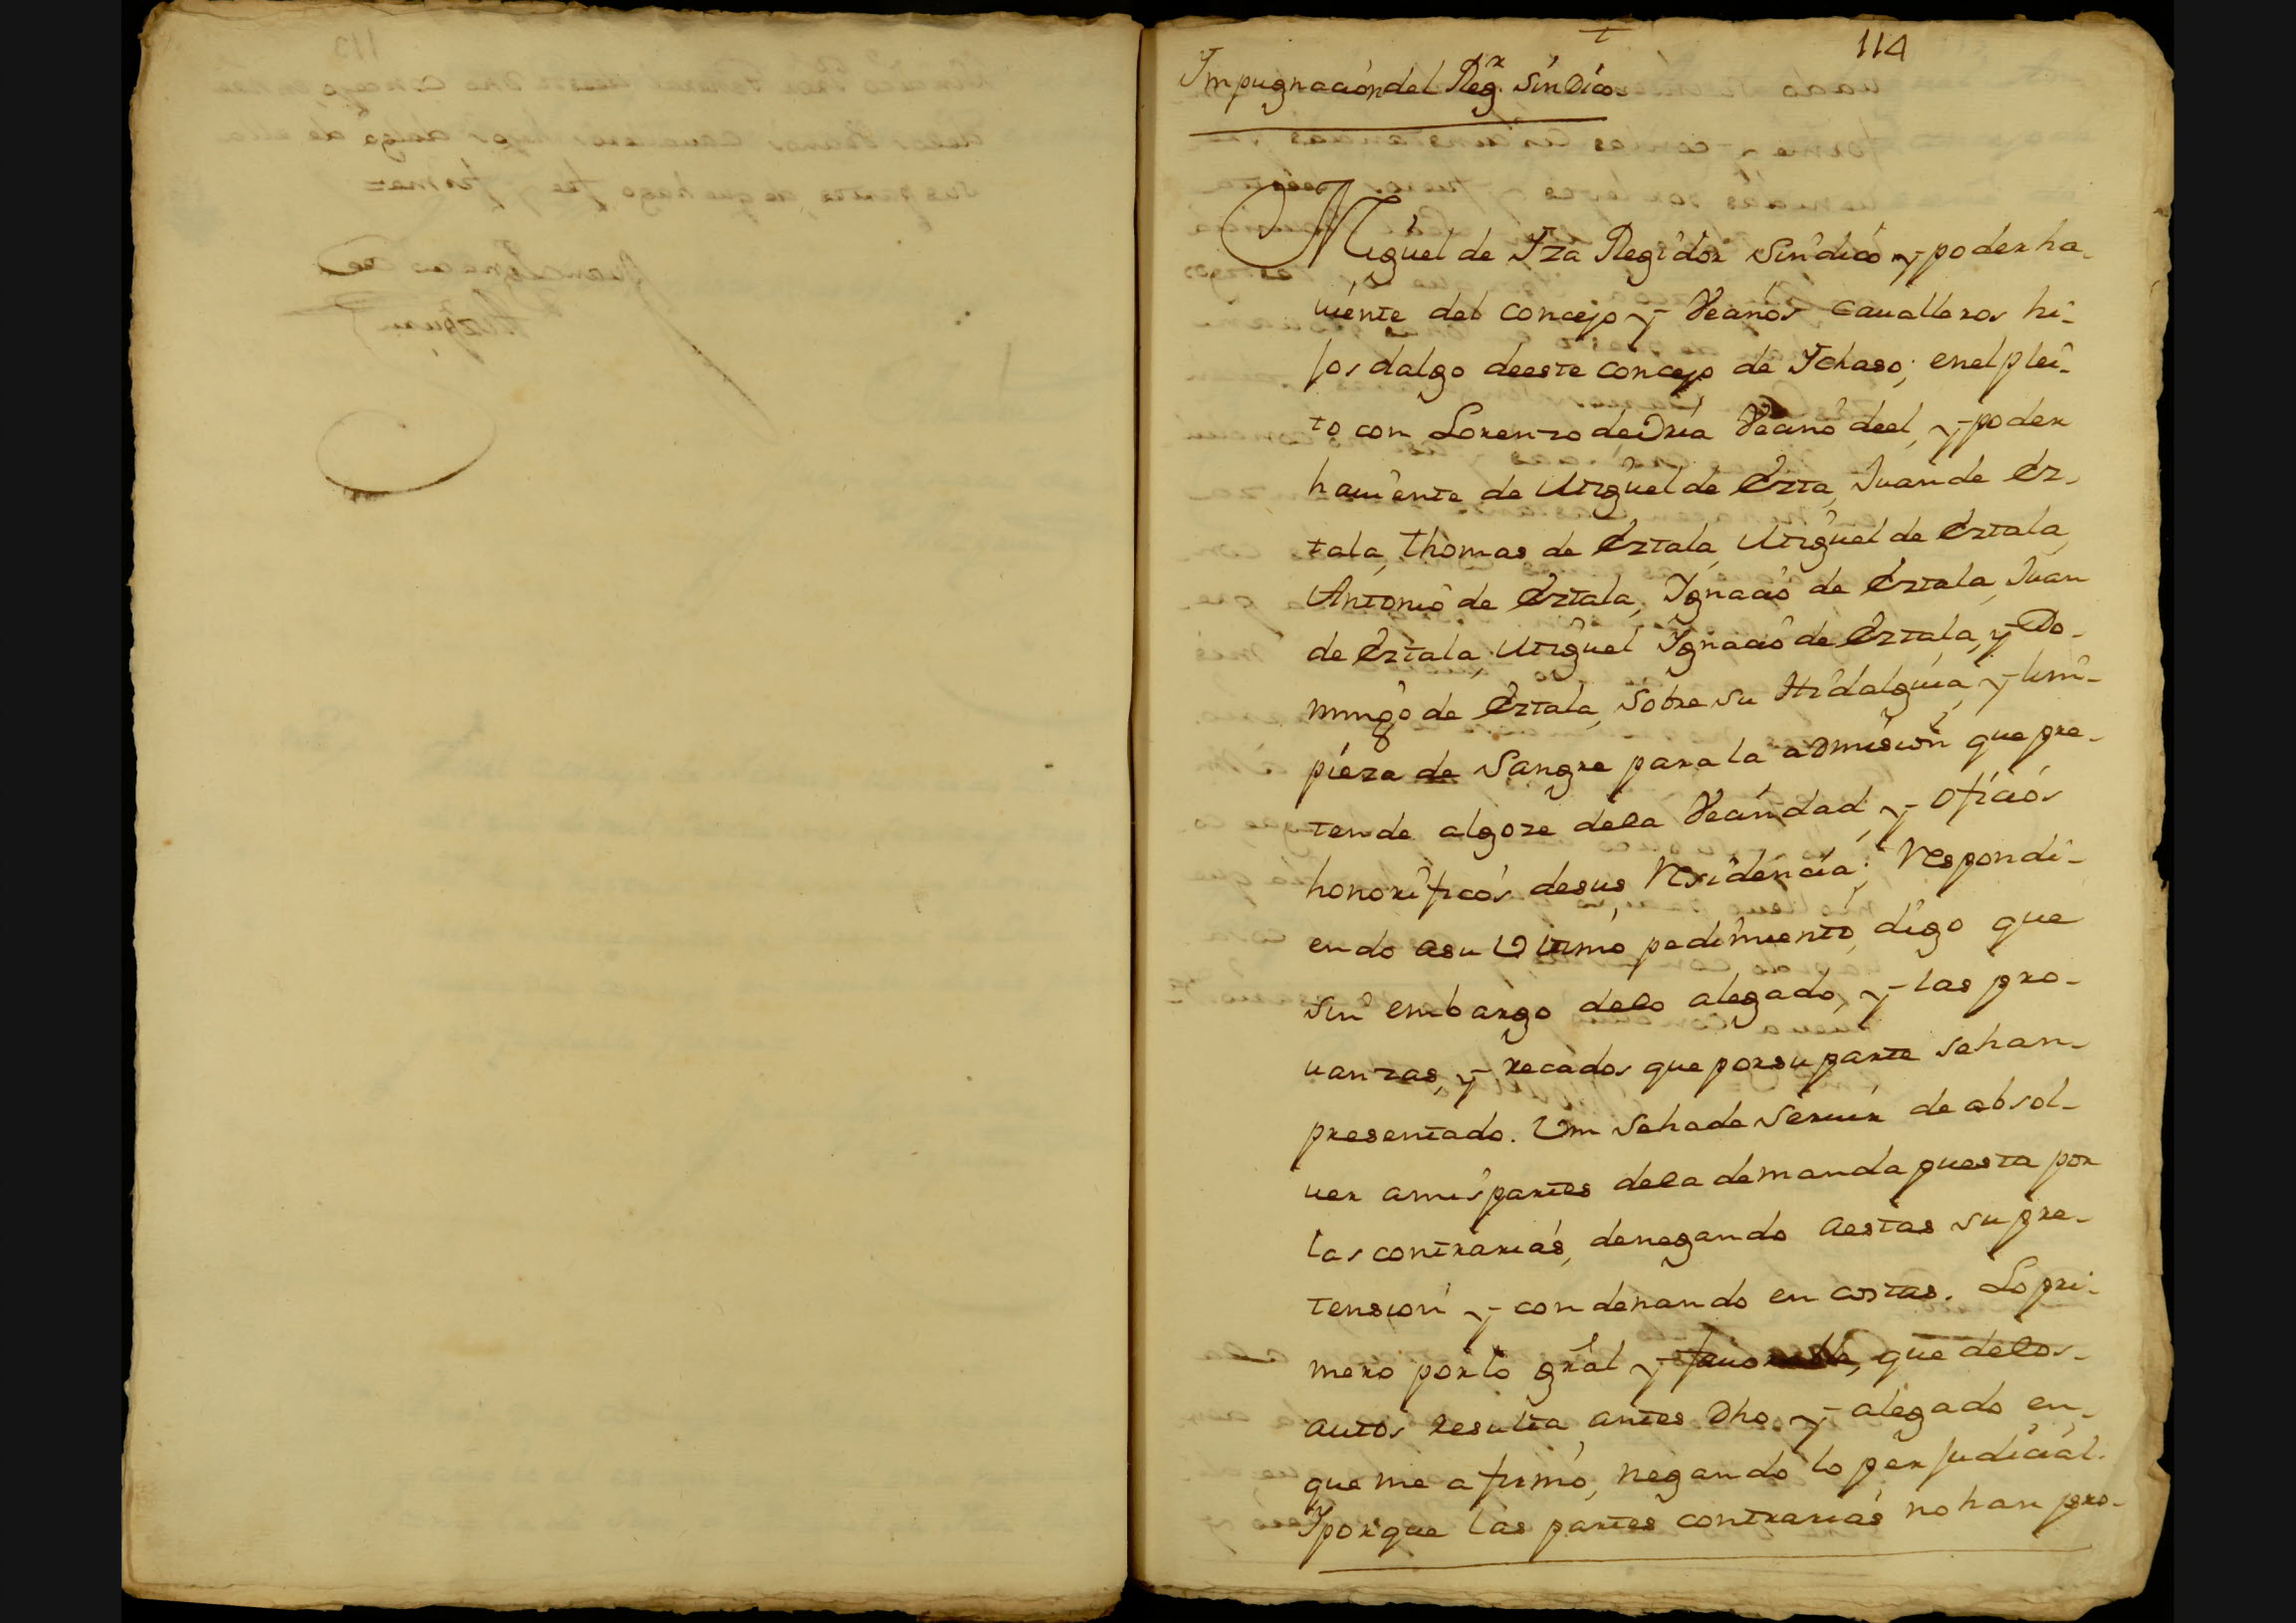 114
Impugnacion del Reg.r Sindico
Miguel de Yza Regidor Sindico y poderha-
uiente del concejo y Veçinos Caualleros hi-
josdalgo deeste concejo de Ychaso; enelplei-
to con Lorenzo de Oria Veçino deel, y poder
hauiente de Miguel de Erzta, Juan de Ez-
tala, Thomas de Eztala, Miguel de Eztala,
Antonio de Eztala, Ygnacio de Eztala, Juan
de Eztala Miguel Ygnacio de Eztala, y Do-
mingo de Eztala, sobre su Hidalguia, y lim-
pieza de Sangre para la admision que pre-
tende algoze dela Veçindad y oficios
honorificos desus Residencia; Respondi-
endo asu Vltimo pedimiento, digo que
sin embargo delo alegado, y las pro-
uanzas, y recados que porsu parte sehan
presentado. Vm sehade seruir de absol-
uer amis partes dela demanda puesta por
las contrarias, denegando aestas su pre-
tension y condenando en costas. Lo pri-
mero por lo gral y fauorable, que delos
autos resulta antes dho y alegado en-
que me afirmo, negando lo perjudicial.
Y porque las partes contrarias no han pro-